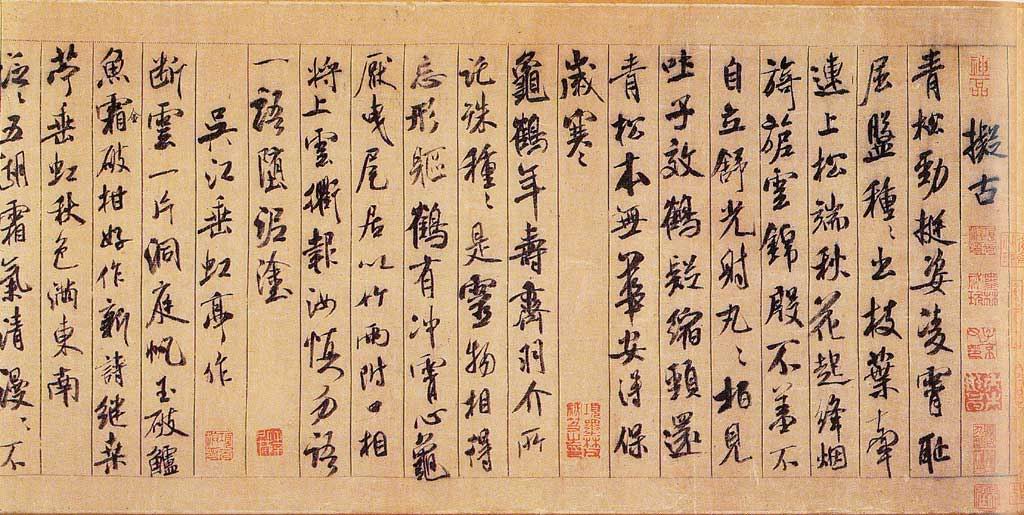 擬古
青松勁挺姿凌霄恥
屈盤種〻出枝葉牽
連上松端秋花起絳烟
旖旎雲錦殷不羞不
自立舒光射丸〻柏見
吐子效鶴疑縮頸還
青松本無華安得保
歲寒
龜鶴年壽齊羽介所
託殊種〻是靈物相得
忘形軀鶴有冲霄心龜
厭曳尾居以竹兩附口相
將上雲衢報汝慎勿語
一語墮泥塗
吳江垂虹亭作
断雲一片洞庭帆玉破鱸
魚霜金破柑好作新詩繼桑
苧垂虹秋色滿東南
泛〻五湖霜氣清漫〻不